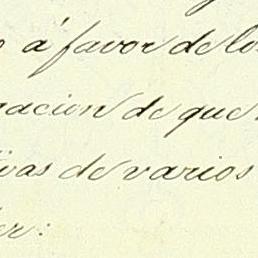 á favor de lo
nacion de que
ivas de varios
er: